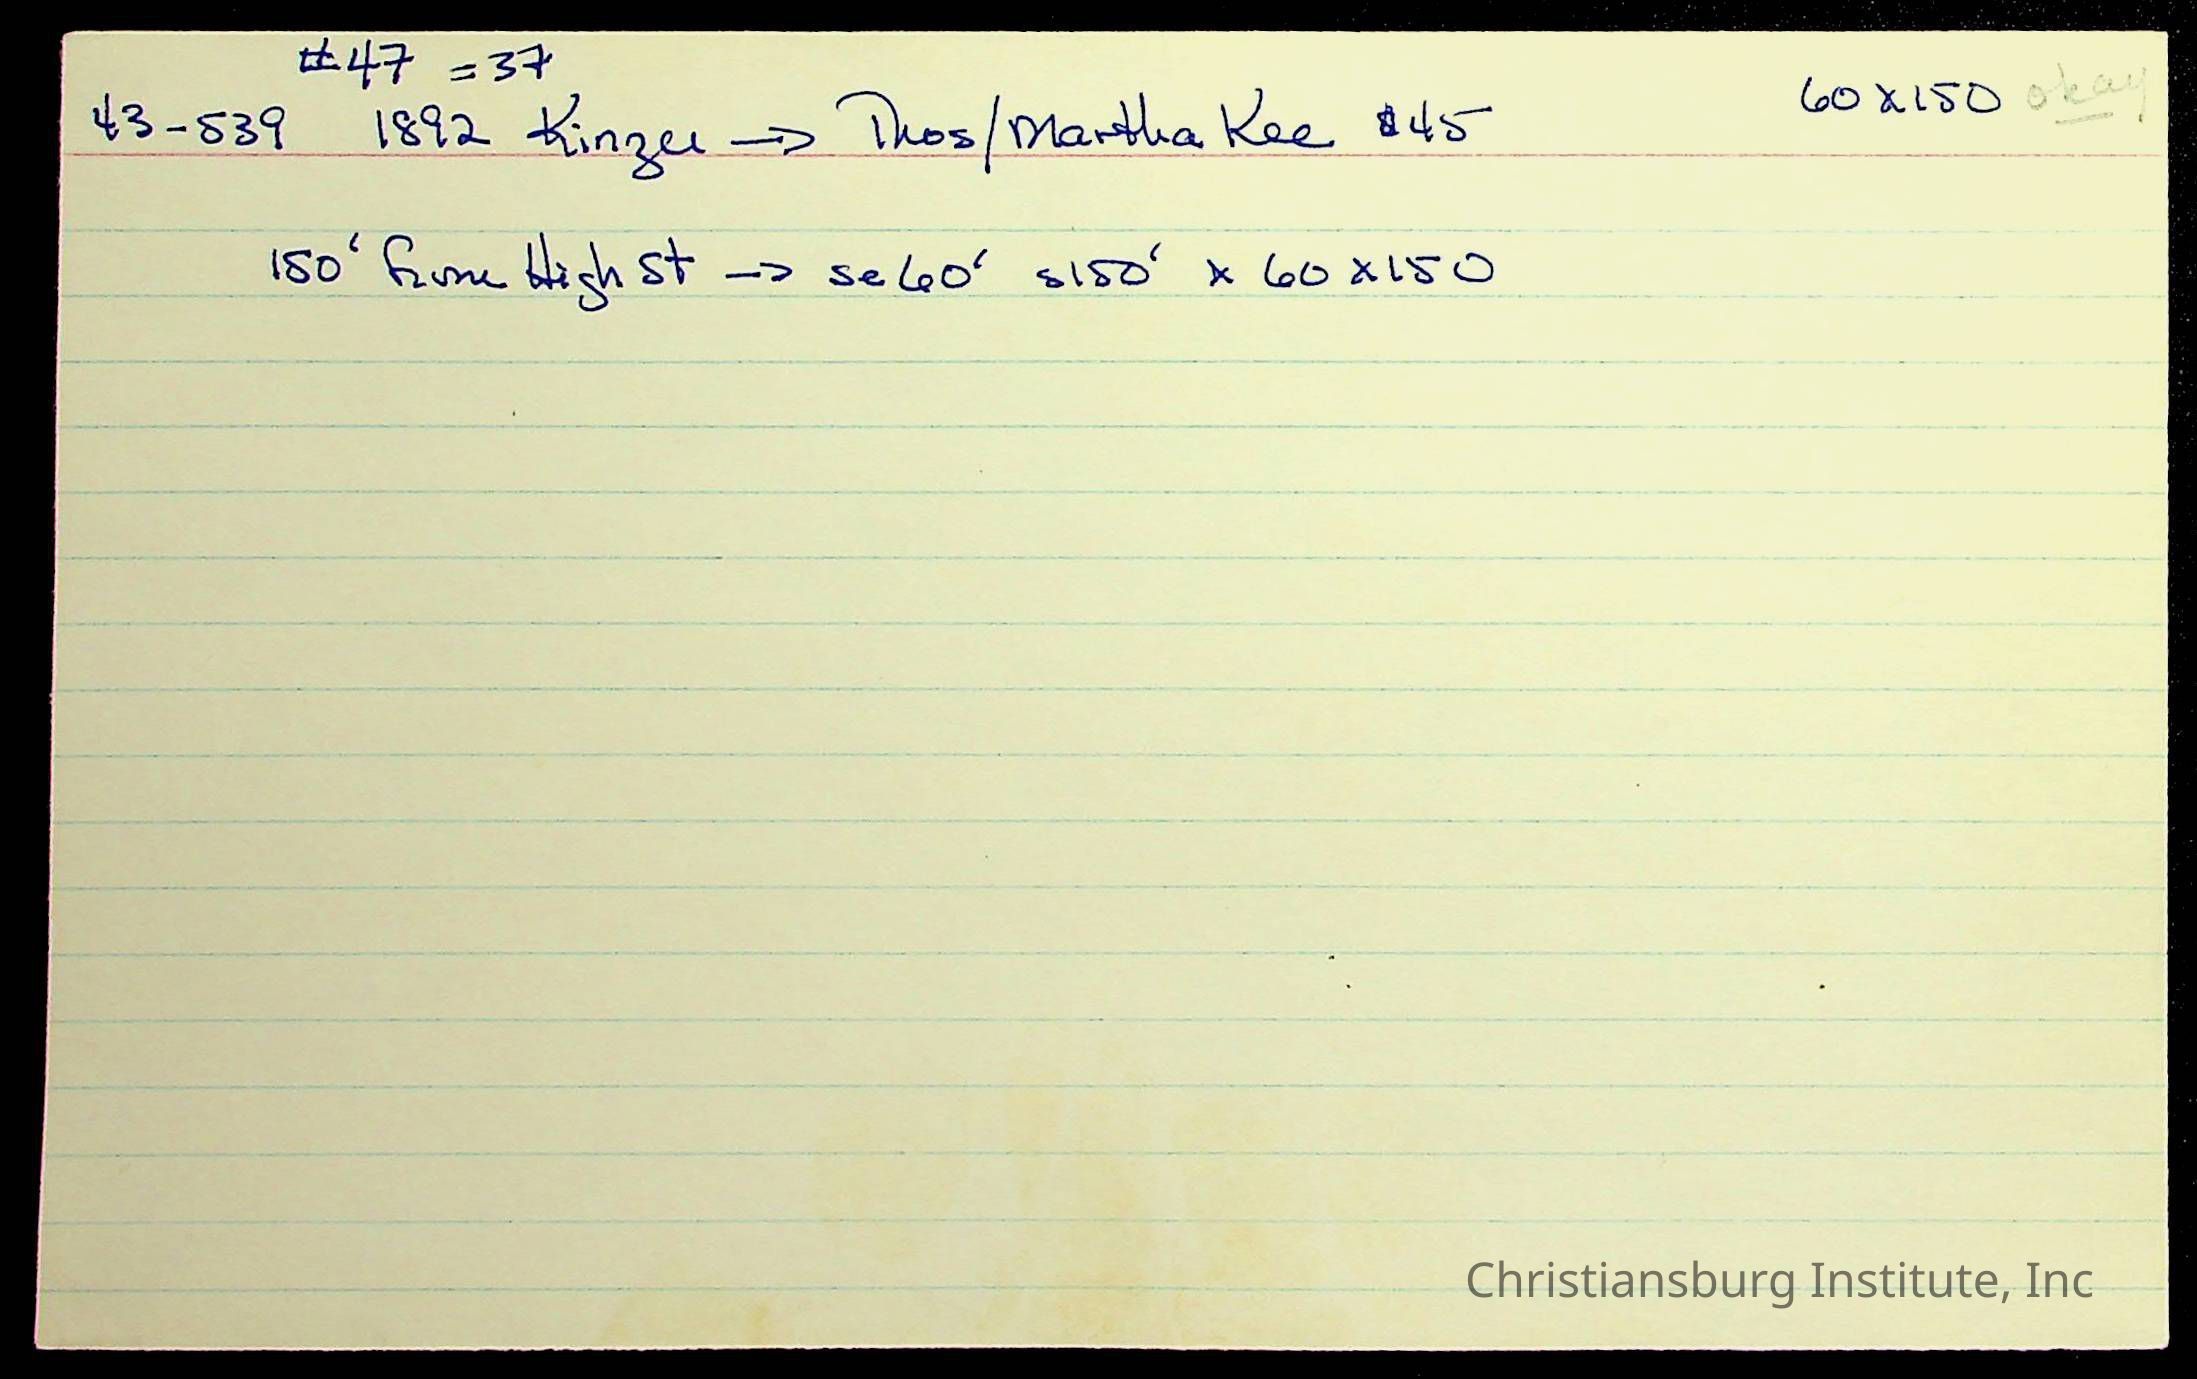 #47 = 37
43-539 1892 Kinzer → Thos/Martha Kee $45 60 x 150 okay
150' from High St → se 60' s 150' x 60 x 150
Christiansburg Institute, Inc